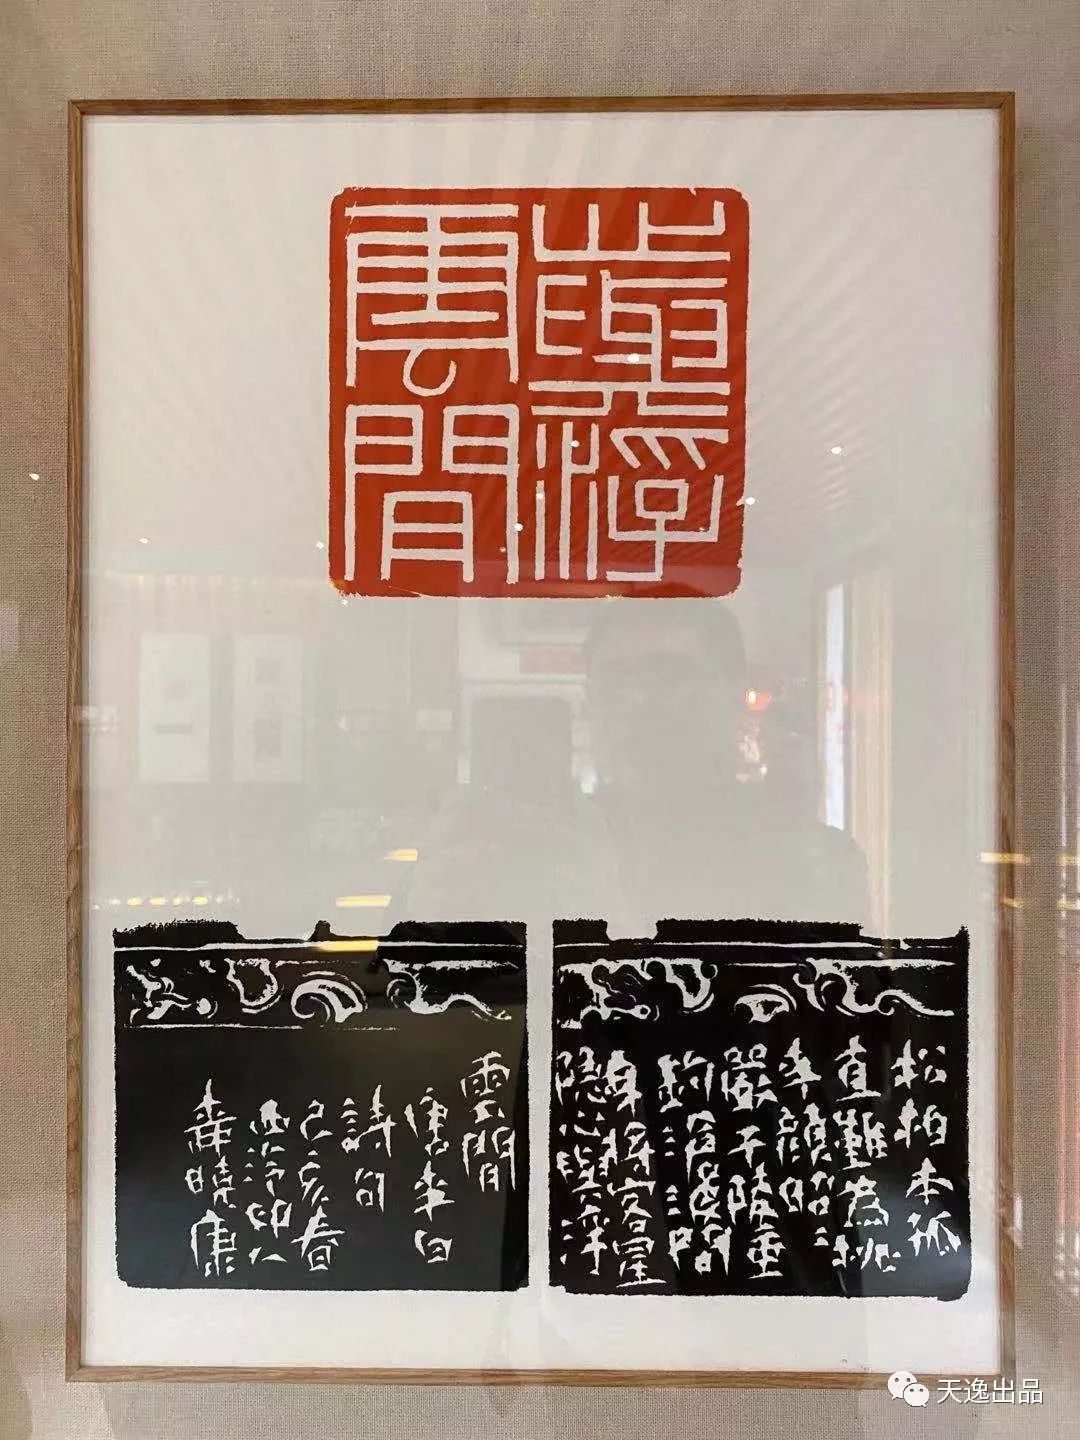 心與浮
雲閒
松柏本孤
直難為桃
李顏昭〻
嚴子陵垂
釣滄波間
身將客星
隱心與浮
雲閒
唐李白
詩句
己亥春
西泠印人
天逸出品